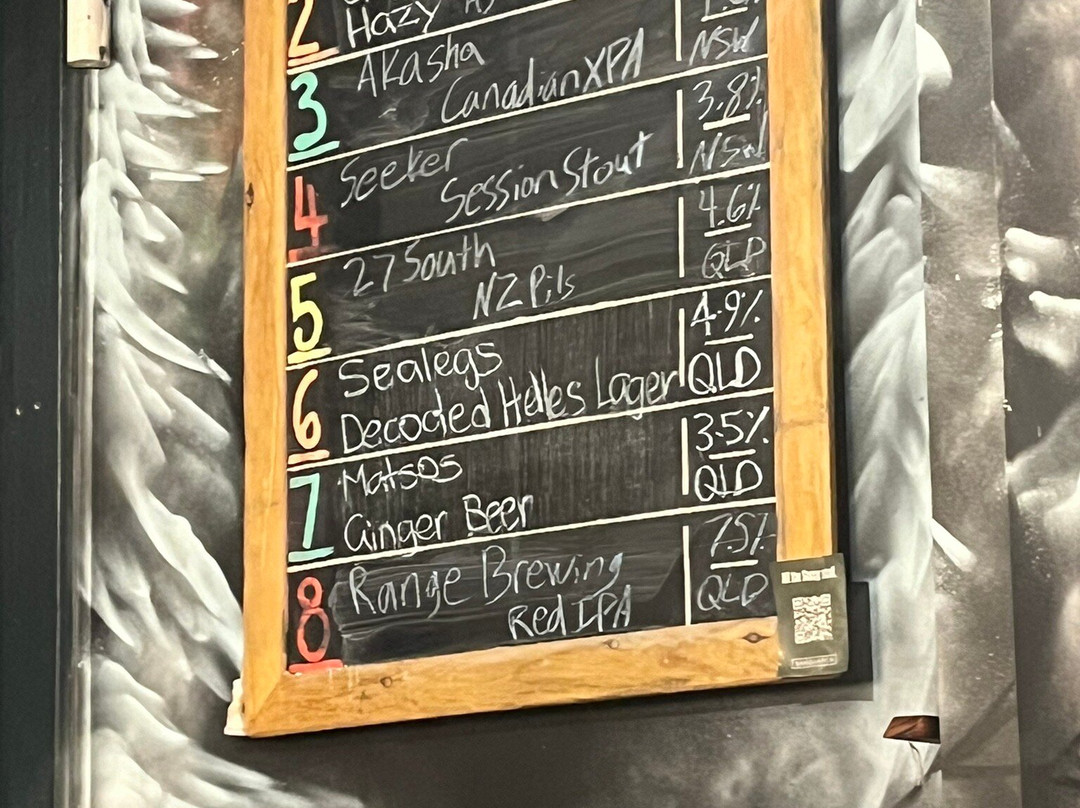 2
Hazy
3
Akasha
Canadian XPA
NSW
4
Seeker
Session Stout
3.8%
NSW
5
27 South
NZ Pils
4.6%
QLD
6
Sealegs
Decoded Helles Lager
4.9%
QLD
7
Matsos
Ginger Beer
3.5%
QLD
8
Range Brewing
Red IPA
7.5%
QLD